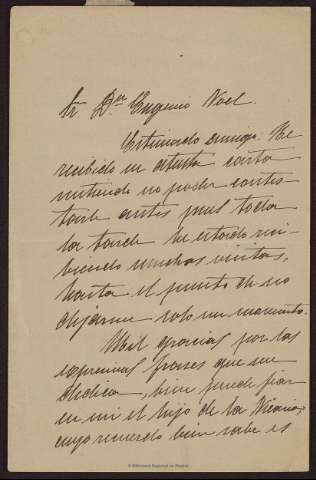 Sr. Dn. Eugenio Noel.
Estimado amigo. He
recibido su atenta carta
sintiendo no poder contes
tarle antes pues toda
la tarde he estado reci-
biendo muchas visitas,
hasta el punto de no
dejarme solo un momento.
Mil gracias por las
expresivas frases que me
dedica, bien puede fiar
en mi el hijo de la
cuyo recuerdo bien sabe es
© Biblioteca Regional de Madrid